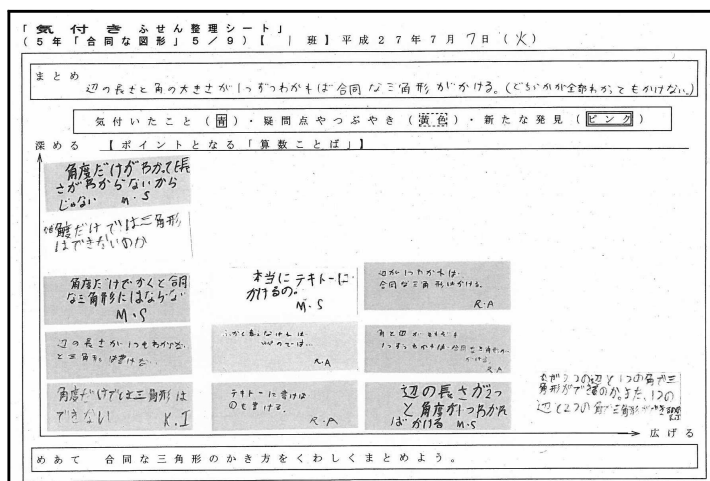 「気付き ふせん整理シート」
(5年「合同な図形」5/9)【 1班】平成27年7月7日(火)
まとめ
辺の長さと角の大きさが1つずつわかれば合同な三角形がかける。(どちらかが全部わかってもかけない。)
気付いたこと(青)・疑問点やつぶやき(黄色)・新たな発見(ピンク)
深める 【ポイントとなる「算数ことば」】
角度だけがわかって長
さがわからないから
じゃない M・S
角度だけでは三角形
はできないのか
角度だけでかくと合同
な三角形にはならない
M・S
本当にテキトーに
かけるの。
M・S
辺が1つわかれば
合同な三角形はかける。
R.A
辺の長さが1つもわから
と三角形は書け
R.A
角と辺が
1つずつわかれば合同な三角形が
かける
R.A
角度だけでは三角形は
できない K.I
テキトーに書けば
R.A
辺の長さが2つ
と角度が1つわかれ
ばかける M・S
2つの辺と1つの角で三
角形ができるのか。また、1つの
辺と2つの角で三角形が
広げる
めあて 合同な三角形のかき方をくわしくまとめよう。